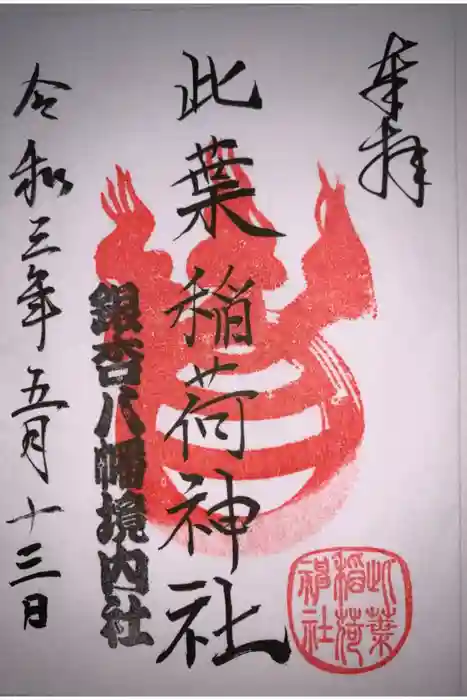 奉拝
此葉稲荷神社
銀杏八幡境内社
令和三年五月十三日
此葉
稲荷
神社